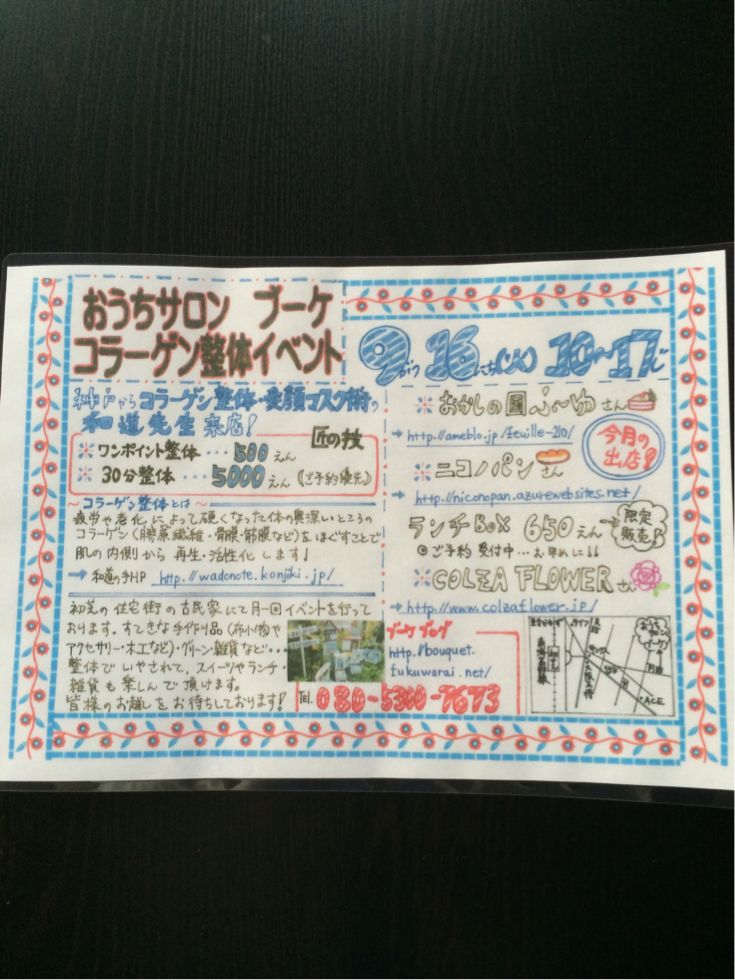 おうちサロン ブーケ
コラーゲン整体イベント
9がつ16にち(火) 10〜17じ
神戸からコラーゲン整体・変顔マスク術の
和道先生来店!
匠の技
※ワンポイント整体…500えん
※30分整体…5000えん(ご予約優先)
〜コラーゲン整体とは〜
疲労や老化によって硬くなった体の奥深いところの
コラーゲン(膠原繊維・骨膜・筋膜など)をほぐすことで
肌の内側から再生・活性化します!
→和道の手HP http://wadonote.konjiki.jp/
初芝の住宅街の古民家にて月一回イベントを行って
おります。すてきな手作り品(布小物や
アクセサリー・木工など)・グリーン・雑貨など…
整体でいやされて、スイーツやランチ・
雑貨も楽しんで頂けます。
皆様のお越しをお待ちしております!
※おかしの国ふ〜ゆさん
→http://ameblo.jp/feuille-210/
今月の
出店!
※ニコノパンさん
→http://niconopan.azurewebsites.net/
ランチBOX 650えん
限定
販売!
◎ご予約受付中…お早めに!!
※COLZA FLOWERさん
→http://www.colzaflower.jp/
ブーケ ブログ
http://bouquet.
fukuwarai.net/
TEL 080-5300-7673
おうち
サロン
ブーケ
ACE